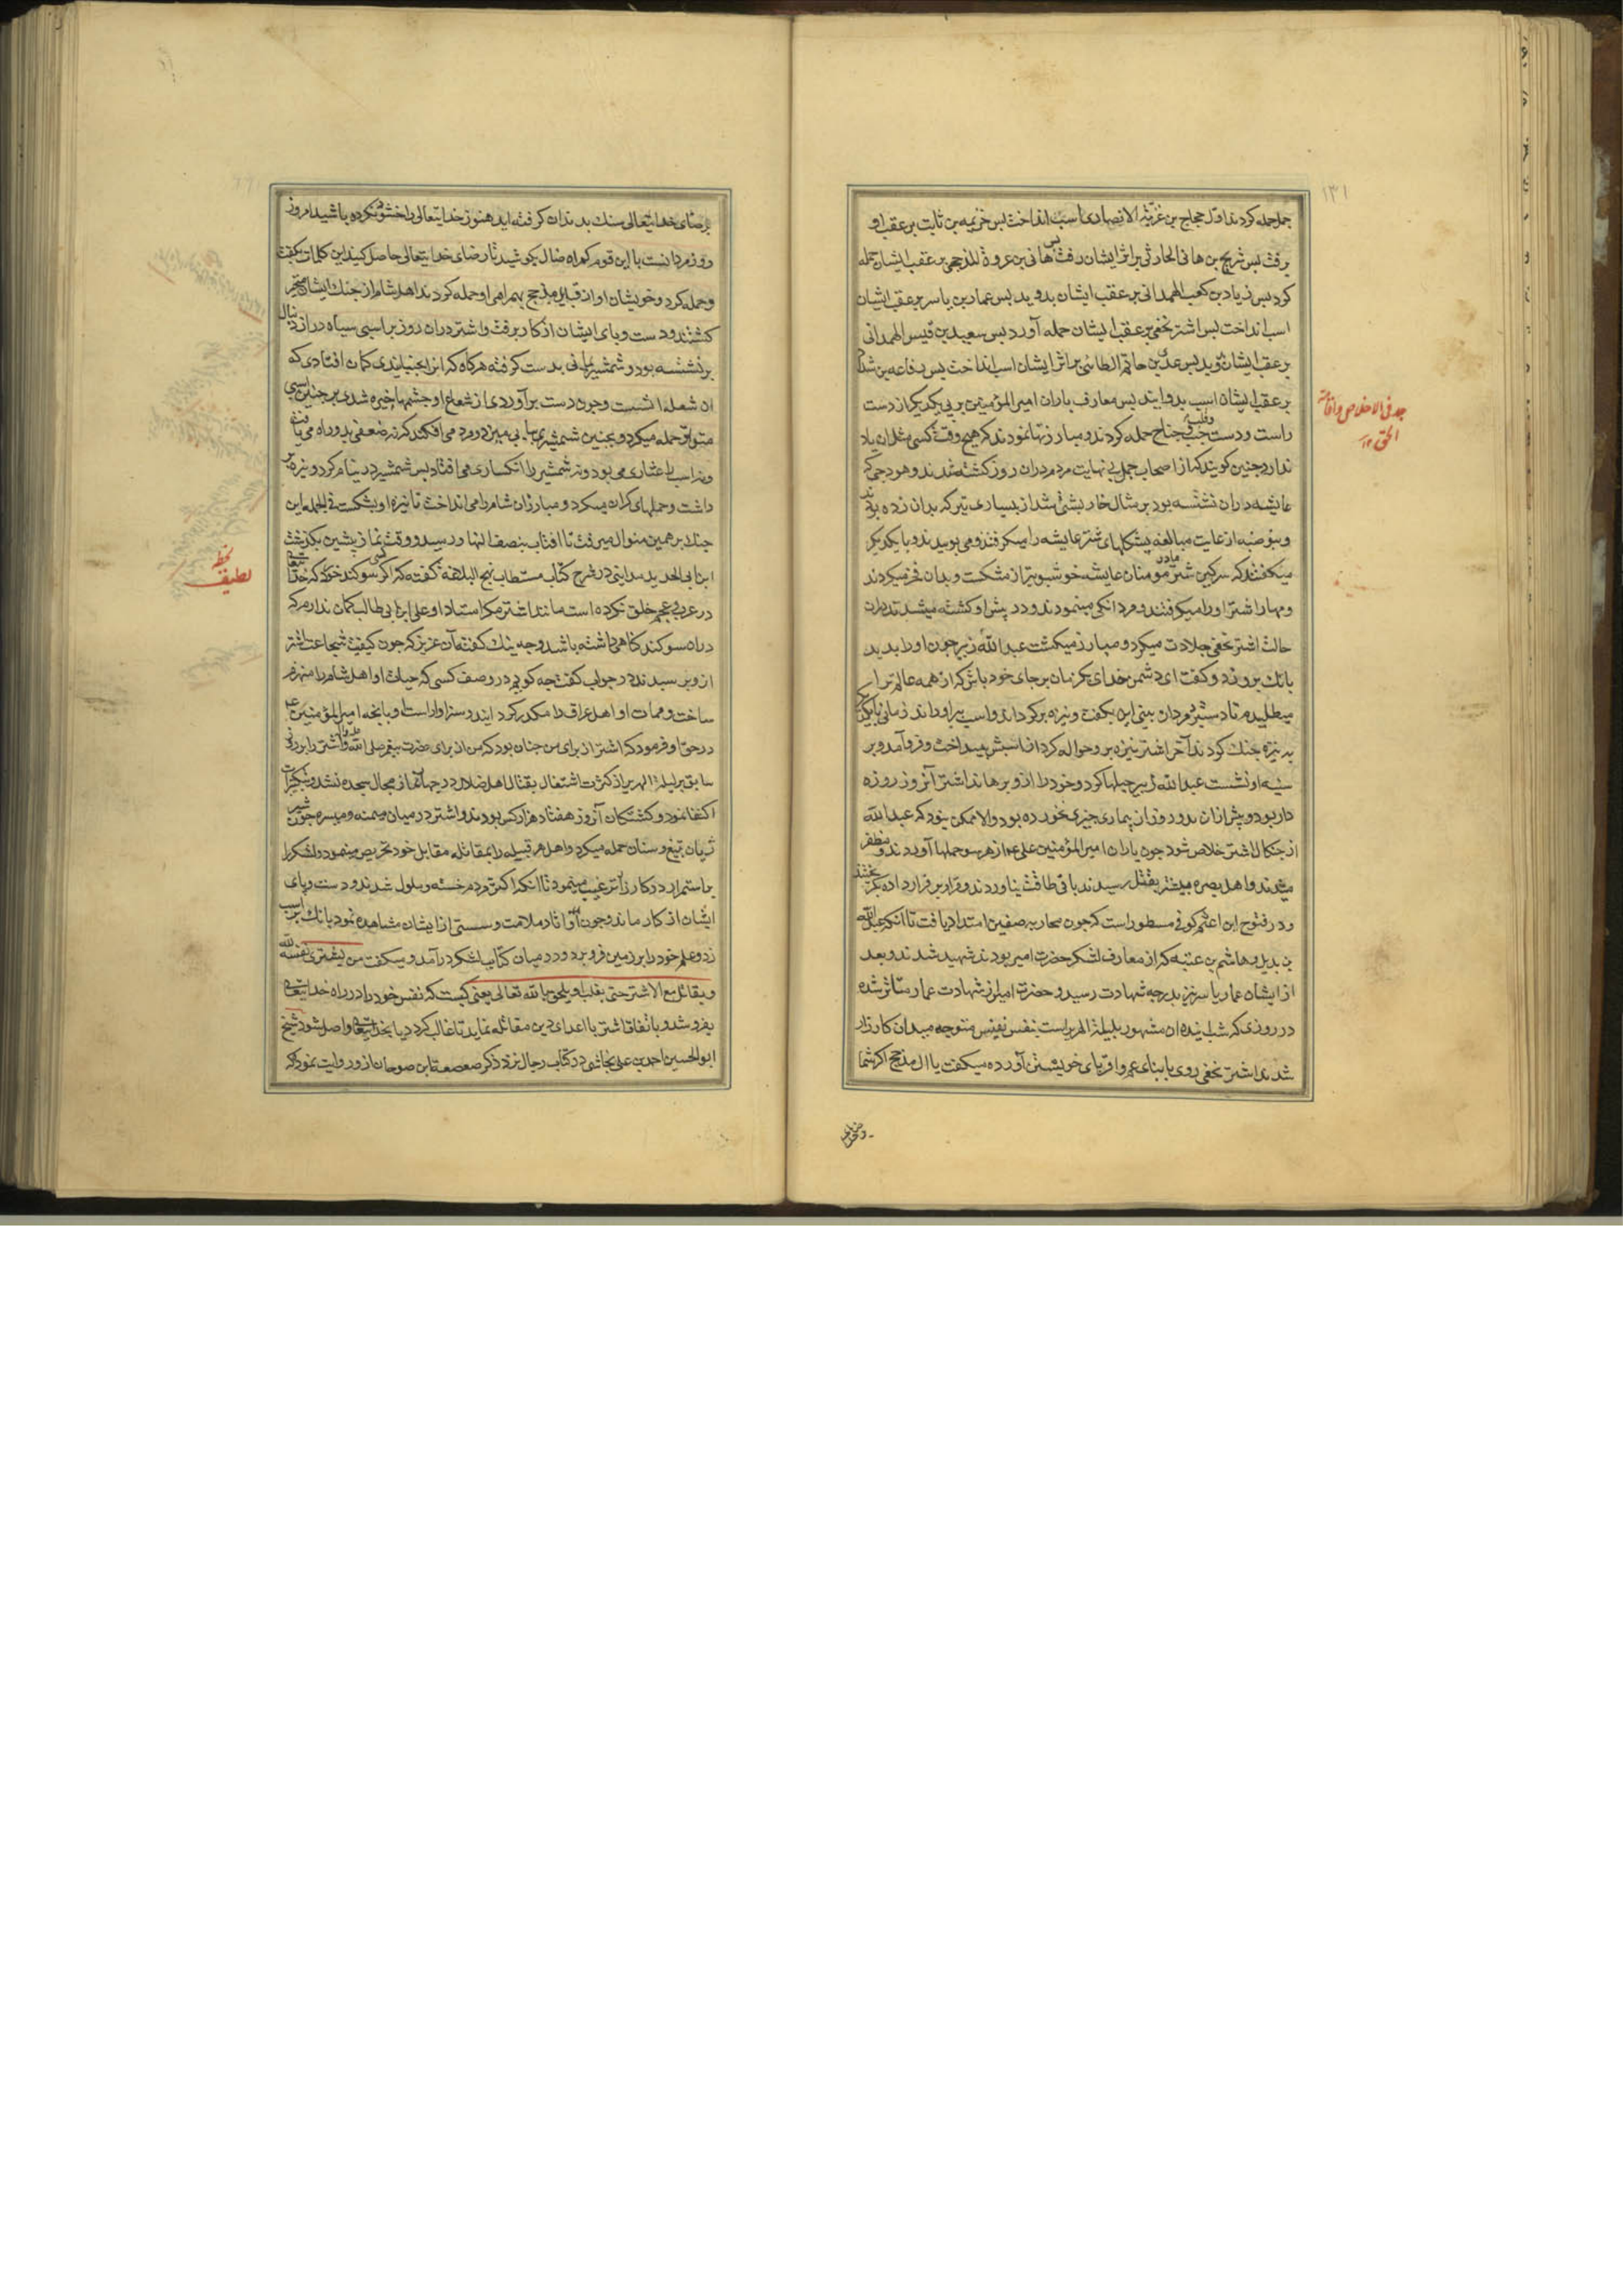 جمل حمله کردند اول حجاج بن غزیة الانصاری اسب انداخت بس خزیمه بن ثابت بر عقب او
برفت بس شریح بن هانی الحارثی بر اثر ایشان رفت بس هانی بن عروة المذحجی بر عقب ایشان حمله
کرد بس زیاد بن کعب الهمدانی بر عقب ایشان بدوید بس عمار بن یاسر بر عقب ایشان
اسب انداخت بس اشتر نخعی بر عقب ایشان حمله آورد بس سعید بن قیس الهمدانی
بر عقب ایشان بدوید بس عدی بن حاتم الطائی بر اثر ایشان اسب انداخت بس رفاعه بن شداد
بر عقب ایشان اسب بدوانید بس معارف یاران امیر المؤمنین بر بی یکدیکر از دست
راست و دست چب و قلب و جناح حمله کردند و مبارزتها نمودند که هیچ وقت کسی مثل ان یاد
ندارد چنین کویند که از اصحاب جمل بی نهایت مردم دران روز کشته شدند و هودجی که
عایشه دران نشسته بود بر مثال خاربشتی شد از بسیاری تیر که بدان زده بودند
و بنو ضبه از غایت مبالغه بشکلهای شتر عایشه را میکرفتند و می بوییدند و با یکدیکر
میکفتند که سرکین شتر مادر مومنان عایشه خوشبوتر از مشکست و بدان فخر میکردند
و مهار اشتر او را میکرفتند و مردانکی مینمودند و در پیش او کشته میشدند دران
حالت اشتر نخعی جلادت میکرد و مبارز میکشت عبد الله زبیر چون او را بدید
بانک برو زد و کفت ای دشمن خدای یکزمان بر جای خود باش که از همه عالم ترا
میطلبیدم تا دستبرد مردان بینی این بکفت و نیزه بر کردانید و اسب براو راند زمانی با یکدیکر
به نیزه جنک کردند آخر اشتر نیزه بر و حواله کرد از اسبش بینداخت و فرو آمد و بر
سینه او نشست عبد الله زبیر حیلها کرد و خود را ازو برهاند اشتر آنروز روزه
دار بود و پیش ازان بدو روز از بیماری چیزی نخورده بود والا ممکن نبود که عبد الله
از جنکال اشتر خلاص شود چون یاران امیر المؤمنین علی ع از هر سو حملها آوردند و مظفر
میشدند و اهل بصره بیشتر بقتل رسیدند باقی طاقت نیاوردند و قرار بر فرار داده بکریختند
و در فتوح ابن اعثم کوفی مسطور است که چون محاربه صفین امتداد یافت تا انکه عبد الله
بن بدیل و هاشم بن عتبه که از معارف لشکر حضرت امیر بودند شهید شدند و بعد
از ایشان عمار یاسر نیز بدرجه شهادت رسید و حضرت امیر از شهادت عمار متاثر شده
در روزی که شب اینده ان مشهور بلیلة الهریر است بنفس نفیس متوجه میدان کارزار
شدند اشتر نخعی روی بابنای عم و اقربای خویشتن آورده میکفت یا ال مذحج اکر شما
برضای خدایتعالی سنک بدندان کرفته اید هنوز خدایتعالی را خشنود نکرده باشید امروز
روز مردانست با این قوم کمراه ضال بکوشید تا رضای خدایتعالی حاصل کنید این کلمات بکفت
و حمله کرد و خویشان او از قبایل مذحج بهمراهی او حمله کردند اهل شام از جنک ایشان متحیر
کشتند و دست و بای ایشان از کار برفت و اشتر دران روز بر اسبی سیاه دراز دنبال
برنشسته بود و شمشیر یمانی بدست کرفته هرکاه که انرا بجنبانیدی کمان افتادی که
ان شعله اتشست و چون دست برآوردی از شعاع او چشمها خیره شدی بر چنین اسبی
متواتر حمله میکرد و بچنین شمشیری سرها بر زمین فرود می افکند که نه ضعفی بدو راه می یافت
و نه اسب را عثاری می بود و نه شمشیر را انکساری می افتاد بس شمشیر در نیام کرد و نیزه بر
داشت و حملهای کران میکرد و مبارزان شام را می انداخت تا نیزه او بشکست فی الجمله این
جنک بر همین منوال میرفت تا افتاب بنصف النهار رسید و وقت نماز پشین بکذشت
ابن ابی الحدید مداینی در شرح کتاب مستطاب نهج البلاغه کفته که اکر کسی سوکند خورد که خدایتعالی
در عرب و عجم خلق نکرده است مانند اشتر مکر استاد او علی ابن ابی طالب کمان ندارم که
دران سوکند کناهی داشته باشد و چه نیک کفته آن عزیز که چون کیفیت شجاعت اشتر
ازو برسیدند در جواب کفت چه کویم در وصف کسی که حیات او اهل شام را منهزم
ساخت و ممات او اهل عراق را مکدر کردانید و سزاوار است او بانچه امیر المؤمنین ع
در حق او فرمود که اشتر از برای من چنان بود که من از برای حضرت پیغمبر صلی الله علیه و آله و اشتر را بروزی
سابق بر لیلة الهریر از کثرت اشتغال بقتال اهل ضلال در چهار نماز مجال سجده نشد و بتکبیرات
اکتفا نمود و کشتکان آنروز هفتاد هزار کس بودند و اشتر در میان میمنه و میسره چون شیر
ژیان بتیغ و سنان حمله میکرد و اهل هر قبیله را بمقاتله مقابل خود تحریص مینمود و لشکر را
باستمرار در کارزار ترغیب مینمود تا انکه اکثر مردم خسته و ملول شدند و دست و پای
ایشان از کار ماند و چون او اثار ملامت و سستی از ایشان مشاهده نمود بانک بر اسب
زد و علم خود را بر زمین فرو برد و در میان کتایب لشکر درآمد و میکفت من یشتری نفسه لله
و یقاتل مع الاشتر حتی یغلب او یلحق بالله تعالی یعنی کیست که نفس خود را در راه خدایتعالی
بفروشد و باتفاق اشتر با اعدای دین مقاتله نماید تا غالب کردد یا بخدایتعالی واصل شود شیخ
ابو الحسین احمد بن علی نجاشی در کتاب رجال نزد ذکر صعصعة ابن صوحان ازو روایت نموده که